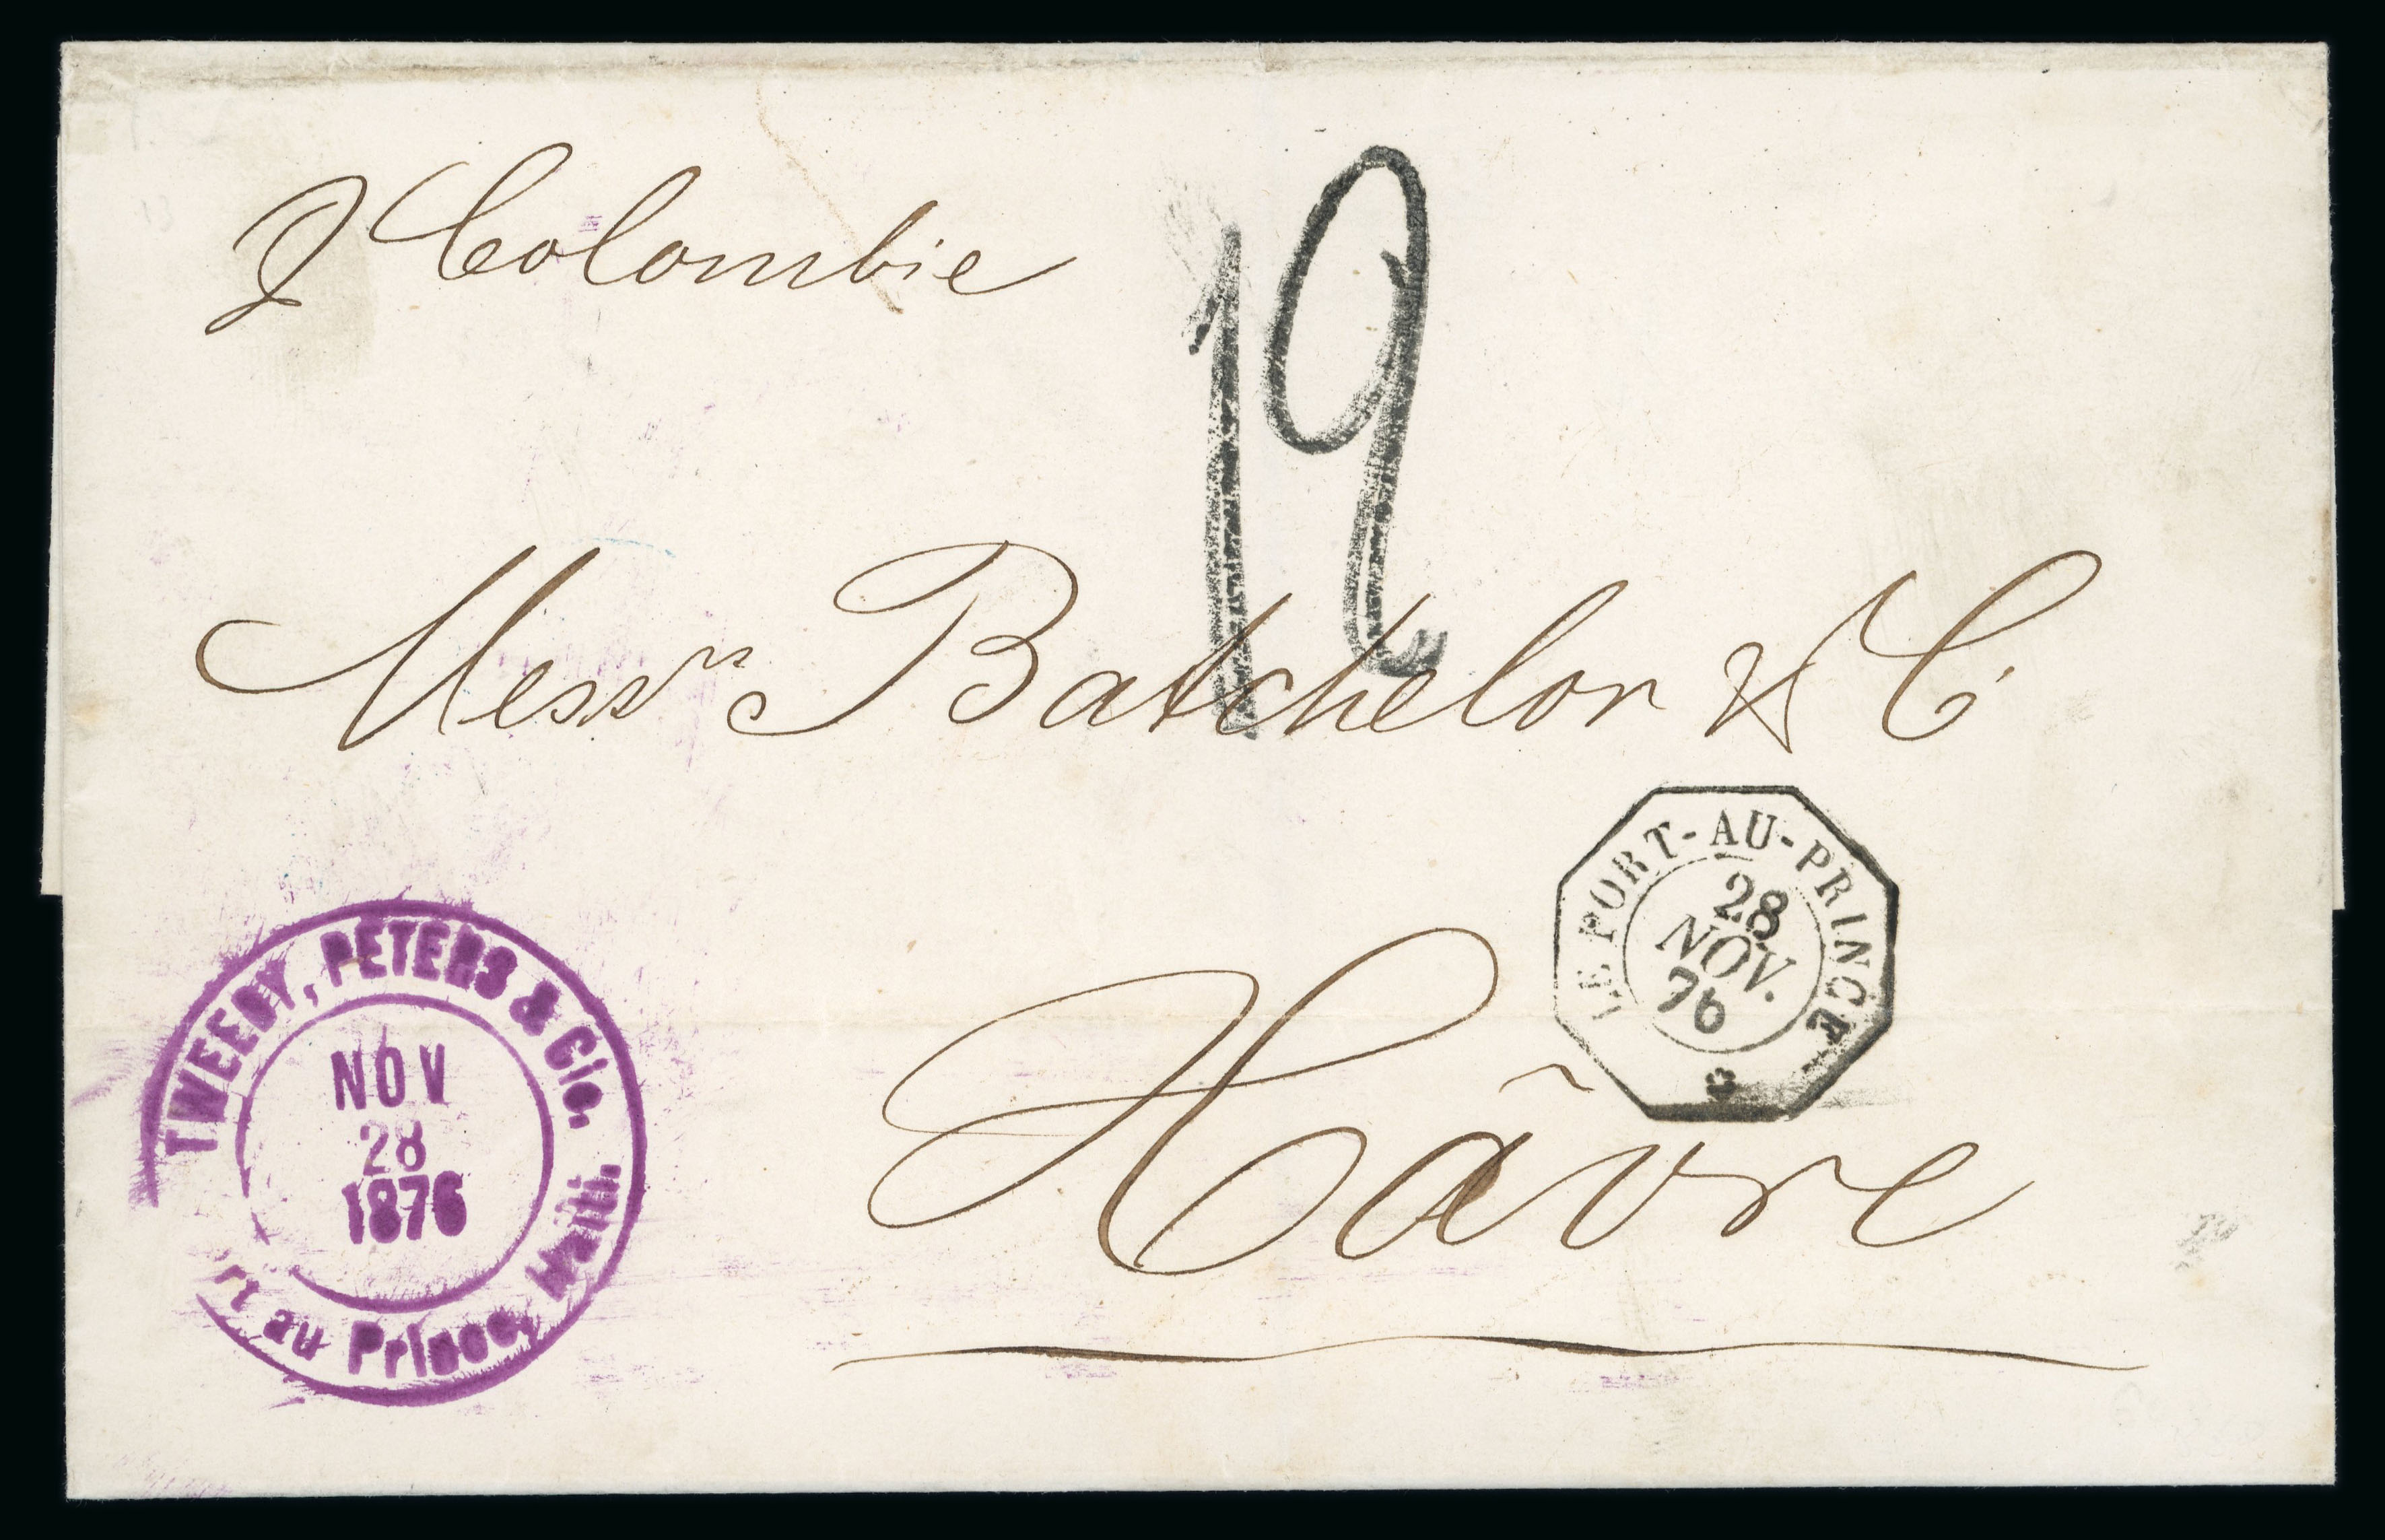 p Colombie
12
Messrs Batchelor & C.
LE PORT-AU-PRINCE
28
NOV.
76
Hâvre
TWEEDY, PETERS & Cie.
NOV
28
1876
rt au Prince, Haiti.